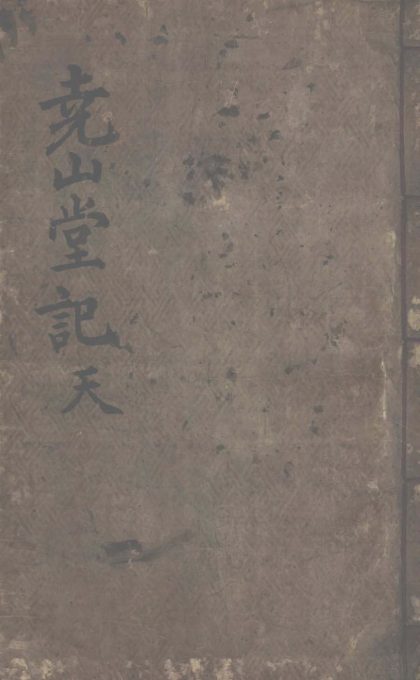 尭山堂記 天